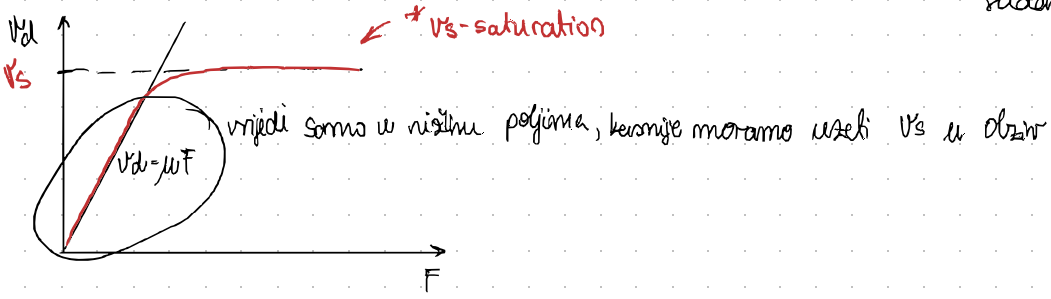 vd
* vs-saturation
vs
vrijedi samo u nižim poljima, kasnije moramo uzeti vs u obzir
vd=μF
F